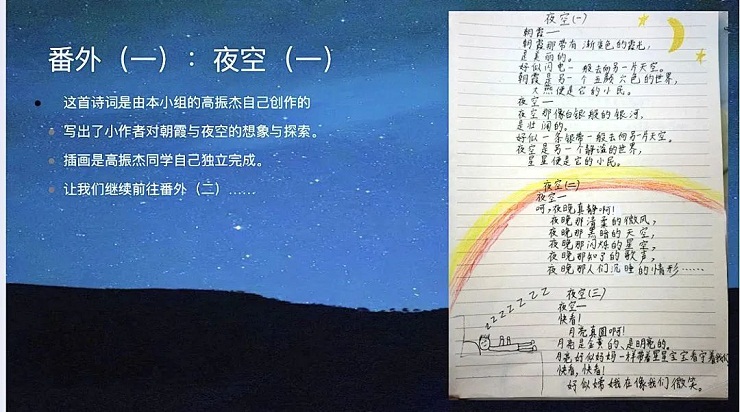 番外（一）：夜空（一）
这首诗词是由本小组的高振杰自己创作的
写出了小作者对朝霞与夜空的想象与探索。
插画是高振杰同学自己独立完成。
让我们继续前往番外（二）……
夜空(一)
朝霞——
朝霞那带有渐变色的霞光，
是美丽的。
好似闪电一般去向另一片天空。
朝霞是另一个五颜六色的世界，
大雁便是它的小民。
夜空——
夜空那像白银般的银河，
是壮阔的。
好似一条银带一般去向另一片天空。
夜空是另一个静谧的世界，
星星便是它的小民。
夜空(二)
夜空——
呵，夜晚真静啊！
夜晚那清柔的微风，
夜晚那黑暗的天空，
夜晚那闪烁的星空，
夜晚那知了的歌声，
夜晚那人们沉睡的情形……
夜空(三)
夜空——
快看！
月亮真圆啊！
月亮是金黄的、是明亮的。
月亮好似妈妈一样带着星星宝宝看守着
快看，快看！
好似嫦娥在像我们微笑。
zzzzzzz